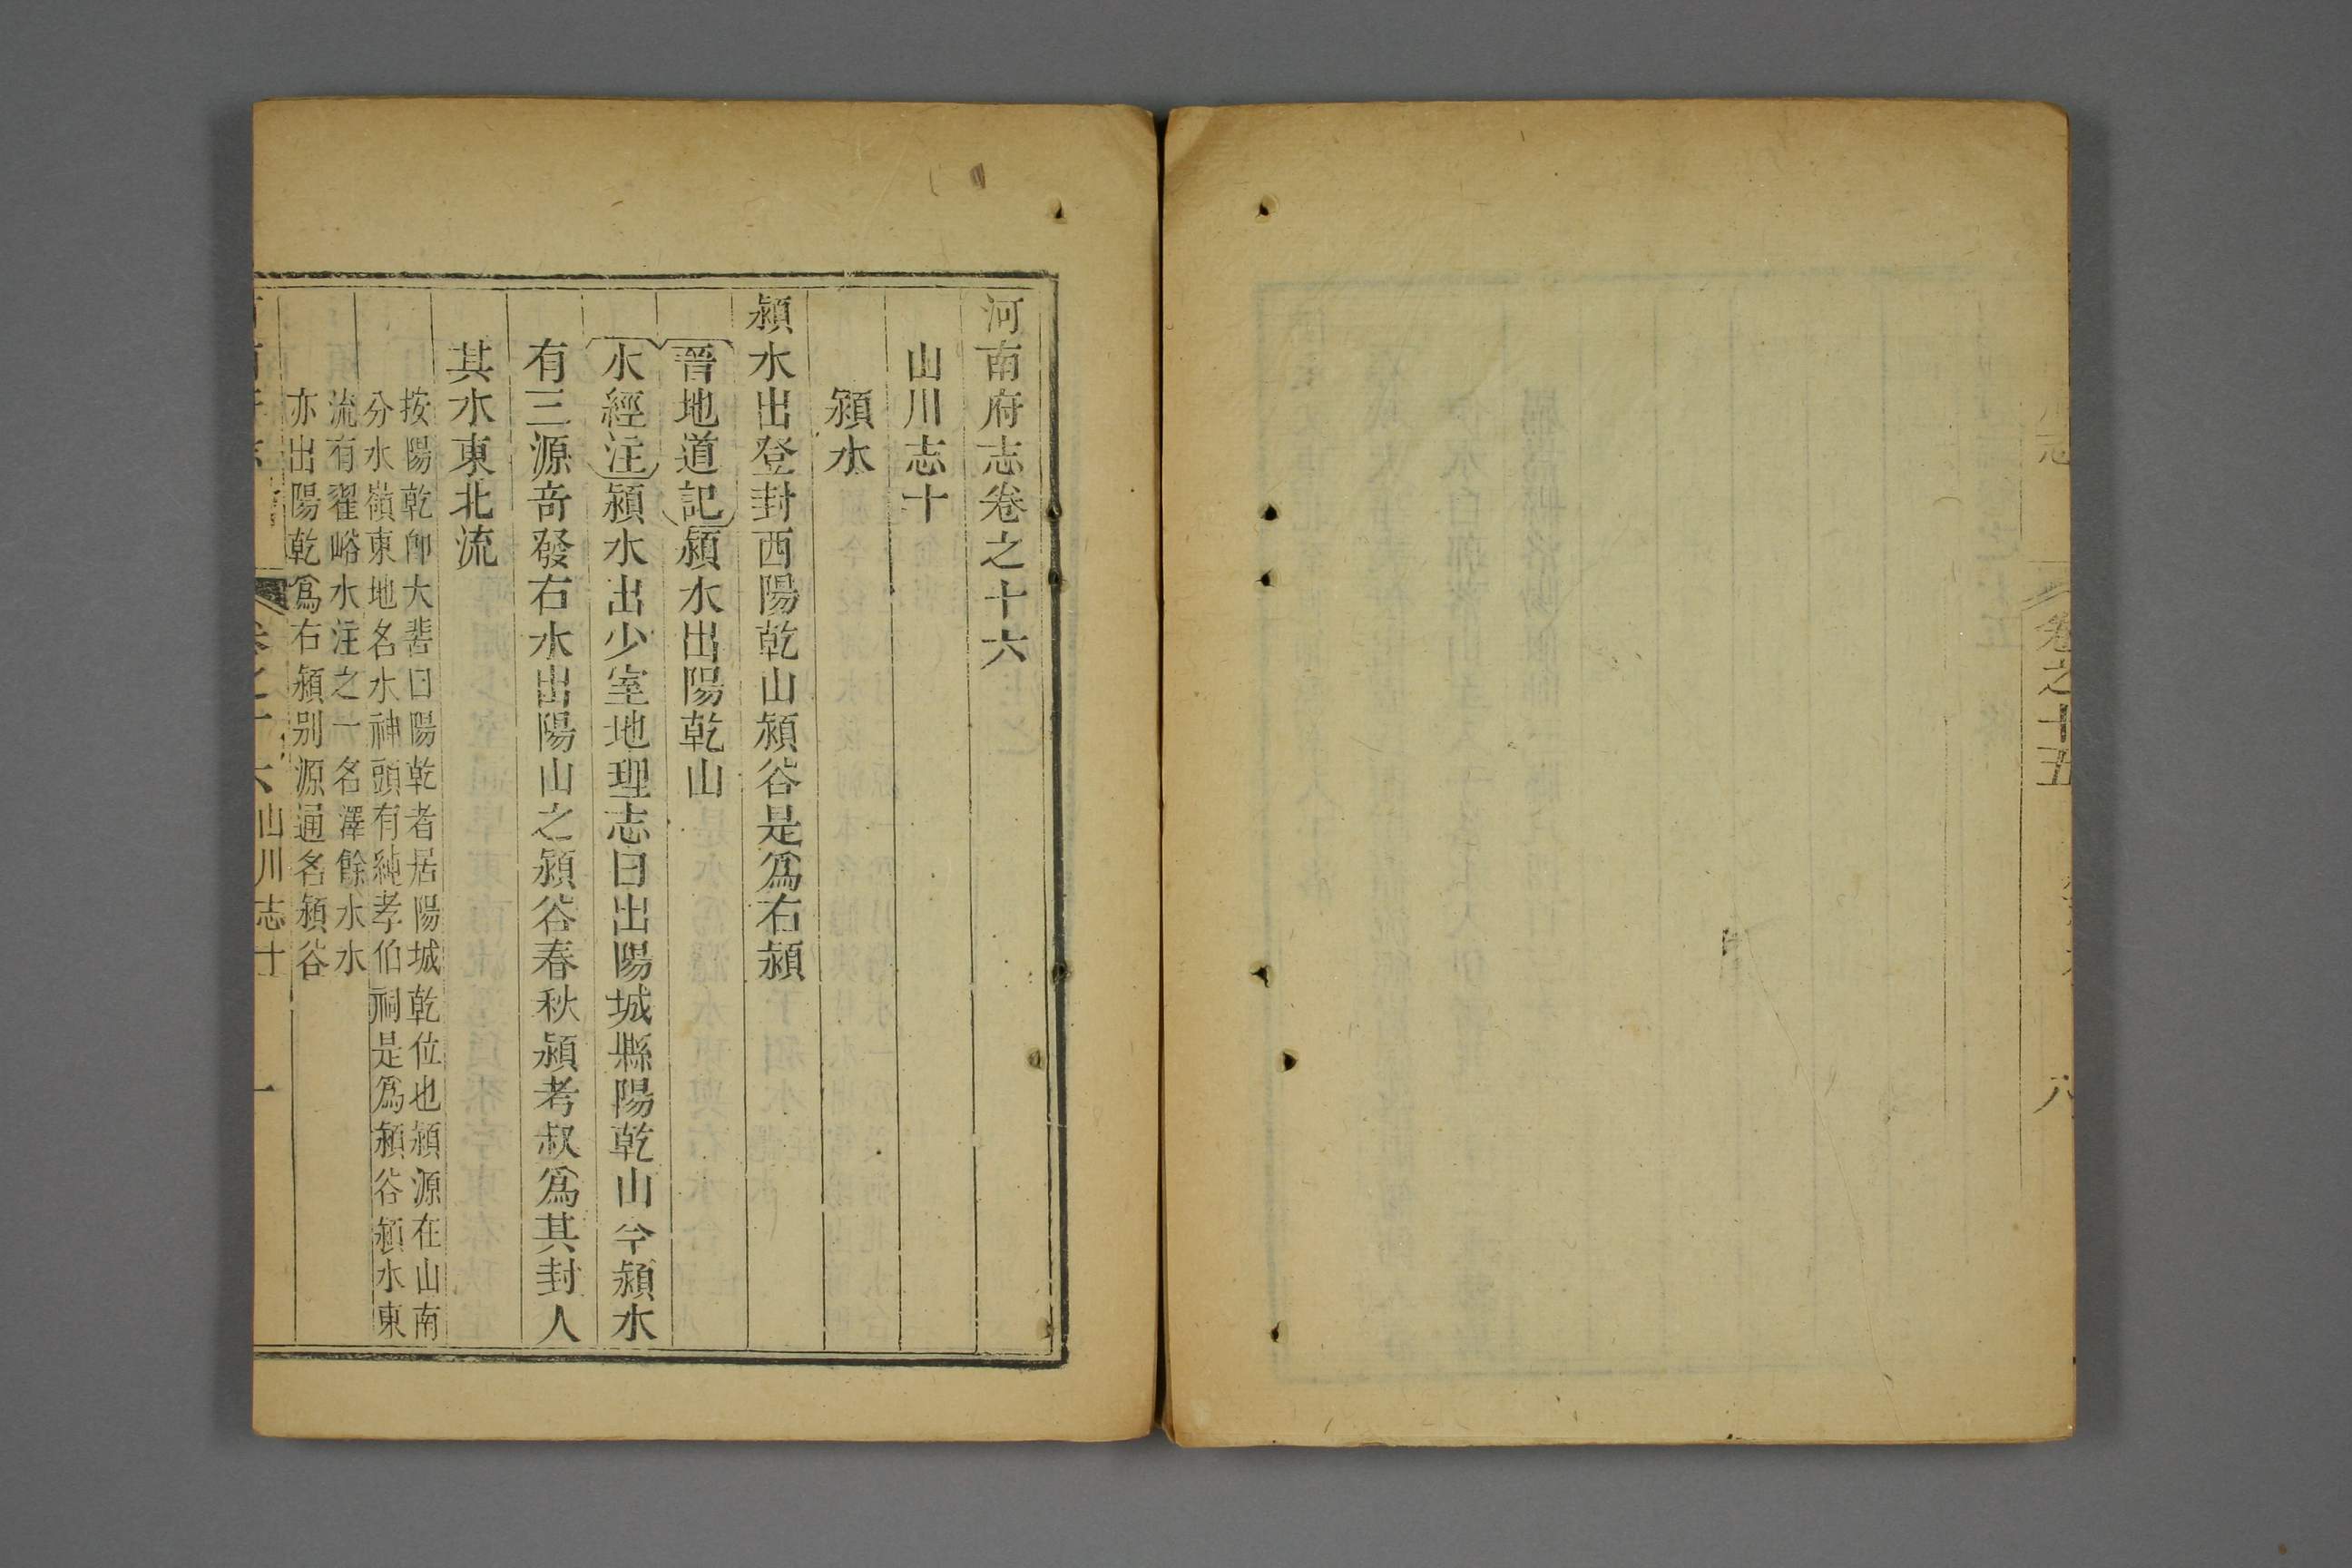 河南府志卷之十六
山川志十
潁水
潁水出登封西陽乾山潁谷是爲右潁
晉地道記潁水出陽乾山
水經注潁水出少室地理志曰出陽城縣陽乾山今潁水
有三源奇發右水出陽山之潁谷春秋潁考叔爲其封人
其水東北流
按陽乾卽大㟝曰陽乾者居陽城乾位也潁源在山南
分水嶺東地名水神頭有純孝伯祠是爲潁谷潁水東
流有翟峪水注之一名澤餘水水
亦出陽乾爲右潁別源通名潁谷
山川志十
一
卷之十五
八